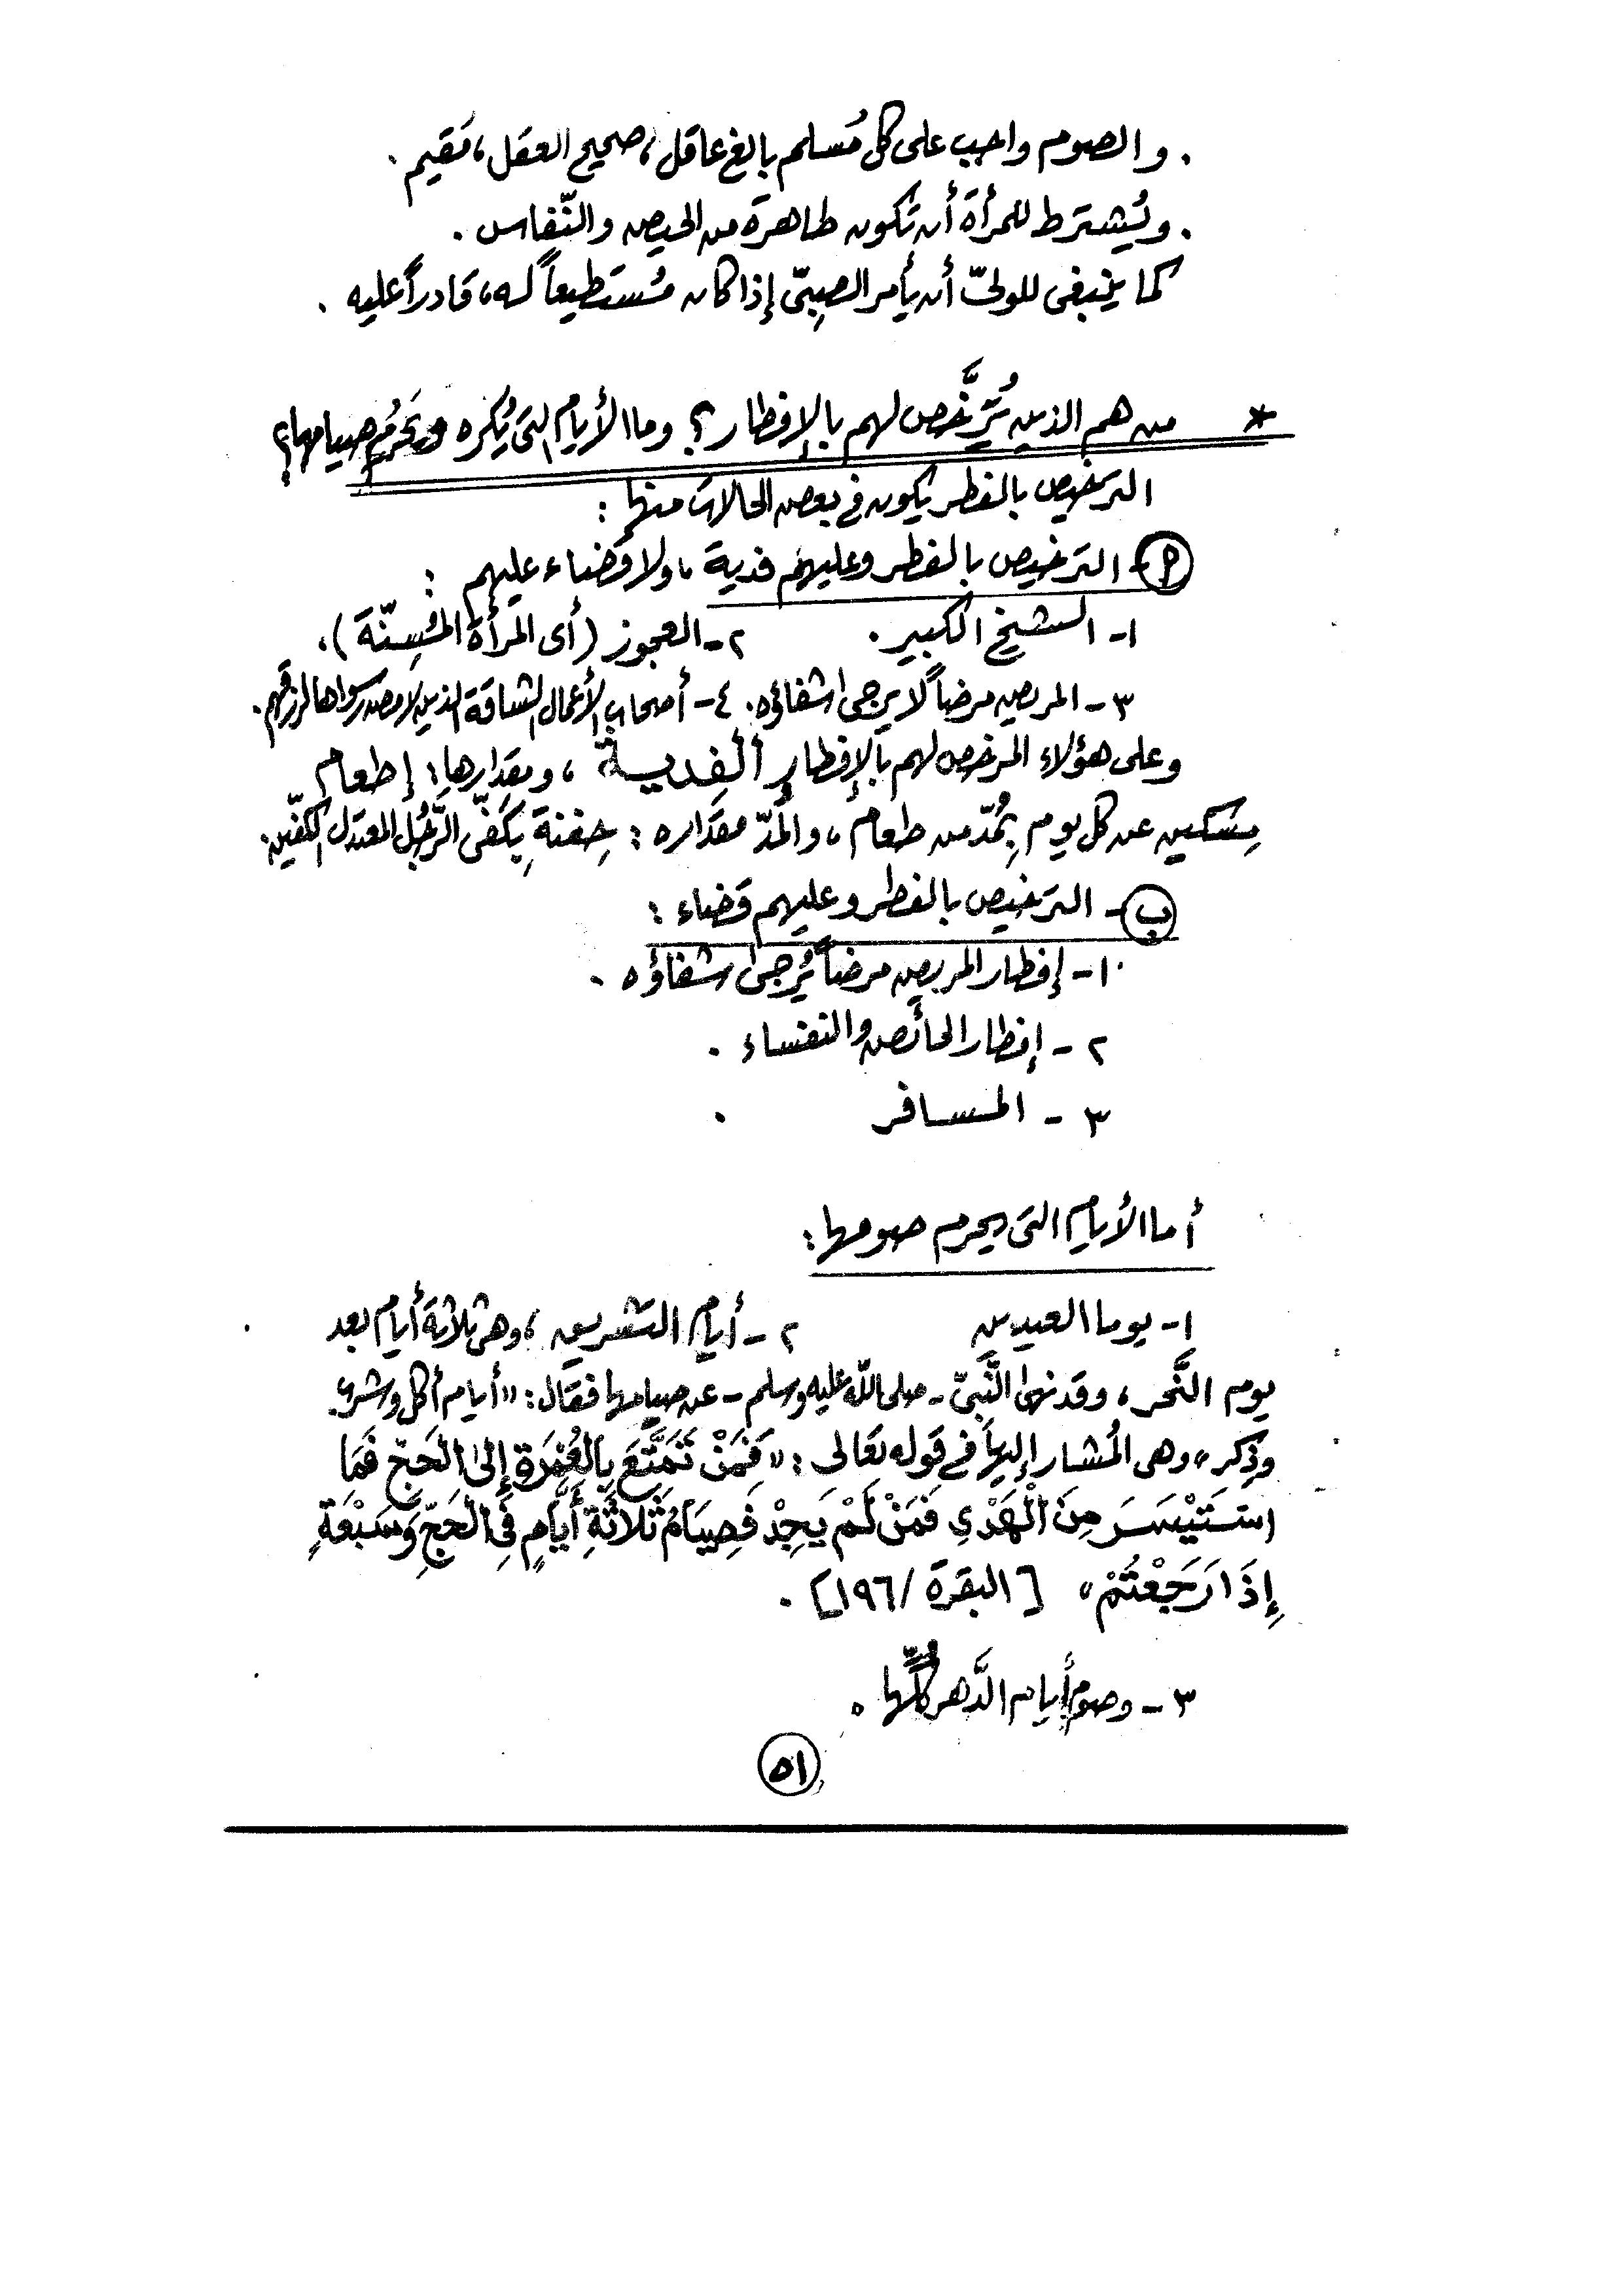 . والصوم واجب على كل مُسلم بالغ عاقل، صحيح العقل، مُقيم .
. ويُشترط للمرأة أن تكون طاهرة من الحيض والنِّفاس .
كما ينبغى للولىّ أن يأمر الصبِىّ إذا كان مُستطيعاً له، قادراً عليه .
* من هم الذين يُرَّخص لهم بالإفطار؟ وما الأيام التى يُكره ويَحرُم صيامها؟
الترخيص بالفطر يكون فى بعض الحالات منها :
أ - الترخيص بالفطر وعليهم فدية، ولا قضاء عليهم :
١- الشيخ الكبير . ٢- العجوز (أى المرأة المُسِنّة ).
٣- المريض مرضاً لا يرجى شفاؤه . ٤- أصحاب الأعمال الشاقة الذين لا مصدر سواها لرزقهم .
وعلى هؤلاء المرخص لهم بالإفطار الفدية ، ومقدارها : إطعام
مِسكين عن كل يوم بِمُدّ من طعام، والمُدّ مقداره : حِفنةِ بِكَفّى الرَّجُل المعتدل الكفّين .
ب - الترخيص بالفطر وعليهم قضاء :
١- إفطار المريض مرضاً يُرجى شفاؤه .
٢- إفطار الحائض والنفساء .
٣- المسافر .
أما الأيام التى يحرم صومها :
١- يوما العيدين ٢- أيام التشريق ، وهى ثلاثة أيام بعد
يوم النَّحر ، وقد نهى النَّبىّ - صلى الله عليه وسلم - عن صيامها فقال : « أيام أكل وشرب
وذِكر » وهى المُشار إليها فى قوله تعالى : « فَمَنْ تَمَتَّعَ بِالْعُمْرَةِ إِلَى الْحَجِّ فَمَا
اسْتَيْسَرَ مِنَ الْهَدْيِ فَمَنْ لَمْ يَجِدْ فَصِيَامُ ثَلَاثَةِ أَيَّامٍ فِي الْحَجِّ وَسَبْعَةٍ
إِذَا رَجَعْتُمْ » [البقرة /١٩٦] .
٣- وصوم أيام الدَّهر كُلِّها .
٥١